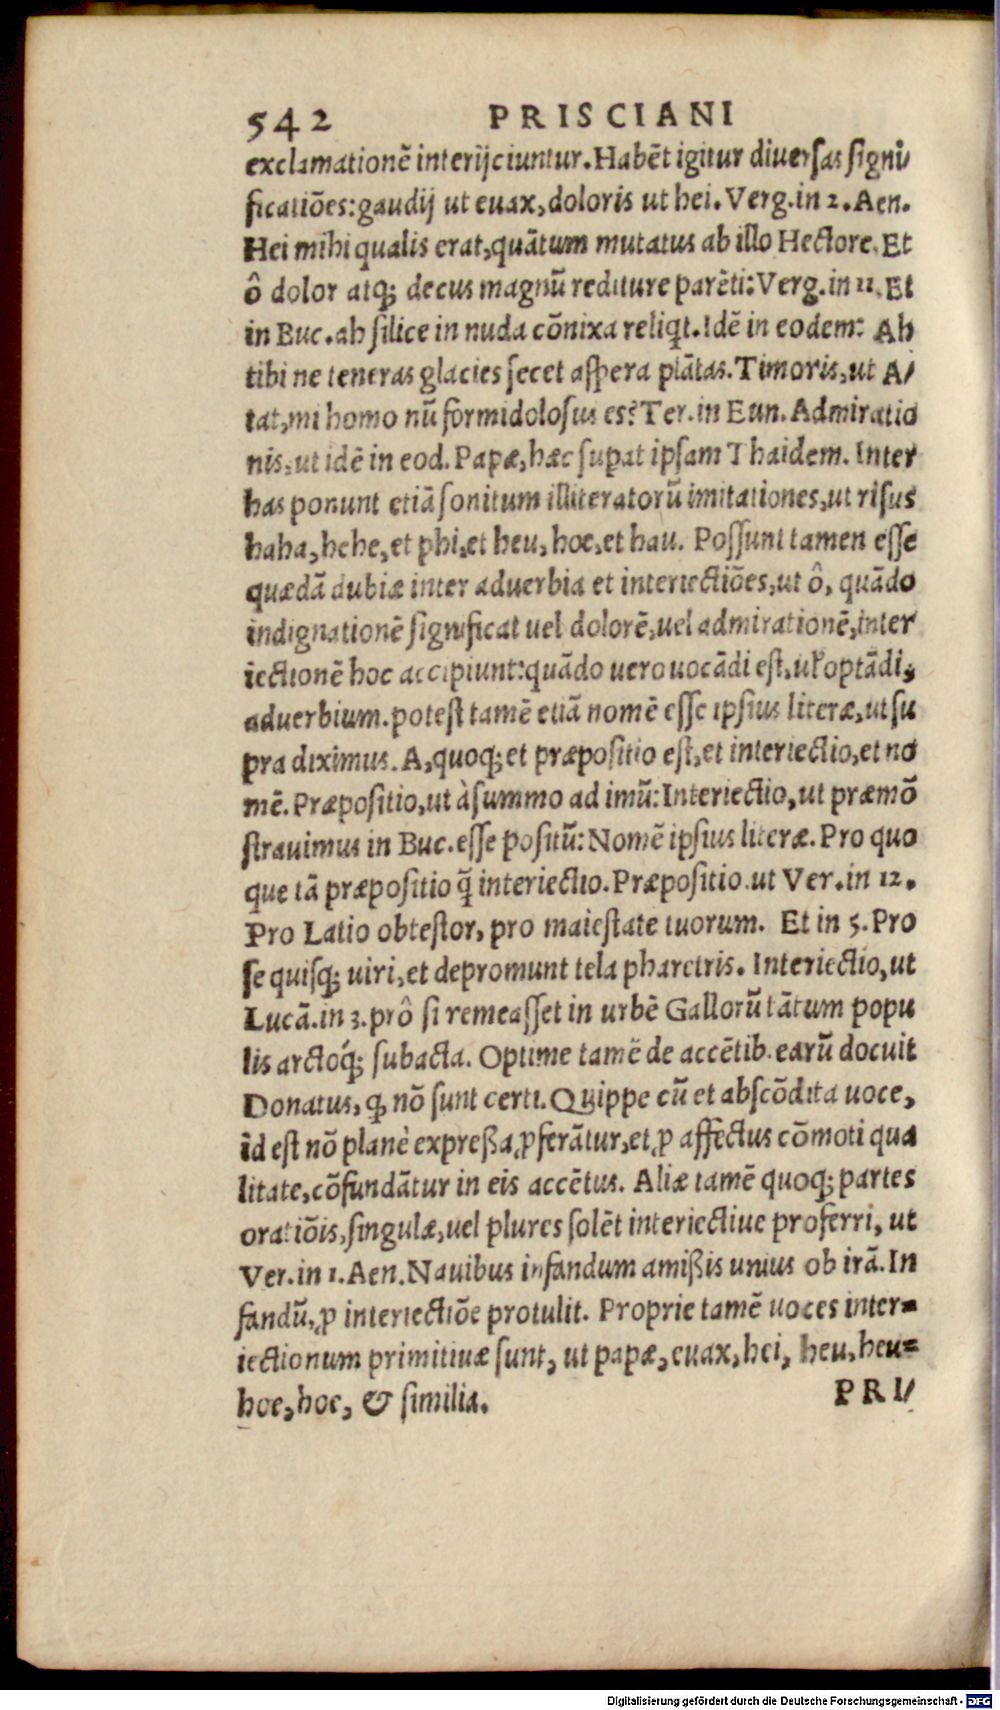 542 PRISCIANI
exclamationē interijciuntur. Habēt igitur diuersas signi/
ficatiōes: gaudij ut euax, doloris ut hei. Verg. in 2. Aen.
Hei mihi qualis erat, quātum mutatus ab illo Hectore. Et
ô dolor atq; decus magnū rediture parēti: Verg. in 11. Et
in Buc. ah silice in nuda cōnixa reliq̄t. Idē in eodem: Ah
tibi ne teneras glacies secet aspera plātas. Timoris, ut A/
tat, mi homo nū formidolosus es? Ter. in Eun. Admiratio
nis, ut idē in eod. Papæ, hæc sup̱at ipsam Thaidem. Inter
has ponunt etiā sonitum illiteratorū imitationes, ut risus
haha, hehe, et phi, et heu, hoe, et hau. Possunt tamen esse
quædā dubiæ inter aduerbia et interiectiōes, ut ô, quādo
indignationē significat uel dolorē, uel admirationē, inter
iectionē hoc accipiunt: quādo uero uocādi est, ul̓ optādi,
aduerbium. potest tamē etiā nomē esse ipsius literæ, ut su
pra diximus. A, quoq; et præpositio est, et interiectio, et no
mē. Præpositio, ut à summo ad imū: Interiectio, ut præmō
strauimus in Buc. esse positū: Nomē ipsius literæ. Pro quo
que tā præpositio q̄ interiectio. Præpositio. ut Ver. in 12.
Pro Latio obtestor, pro maiestate tuorum. Et in 5. Pro
se quisq; uiri, et depromunt tela pharetris. Interiectio, ut
Lucā. in 3. prô si remeasset in urbē Gallorū tātum popu
lis arctoq́; subacta. Optime tamē de accētib. earū docuit
Donatus, q̱ nō sunt certi. Quippe cū et abscōdita uoce,
id est nō planè expreßa ꝓferātur, et ꝓ affectus cōmoti qua
litate, cōfundātur in eis accētus. Aliæ tamē quoq; partes
oratiōis, singulæ, uel plures solēt interiectiue proferri, ut
Ver. in 1. Aen. Nauibus infandum amißis unius ob irā. In
fandū, ꝓ interiectiōe protulit. Proprie tamē uoces inter=
iectionum primitiuæ sunt, ut papæ, euax, hei, heu, heu=
hoe, hoc, & similia.
PRI/
Digitalisierung gefördert durch die Deutsche Forschungsgemeinschaft - DFG